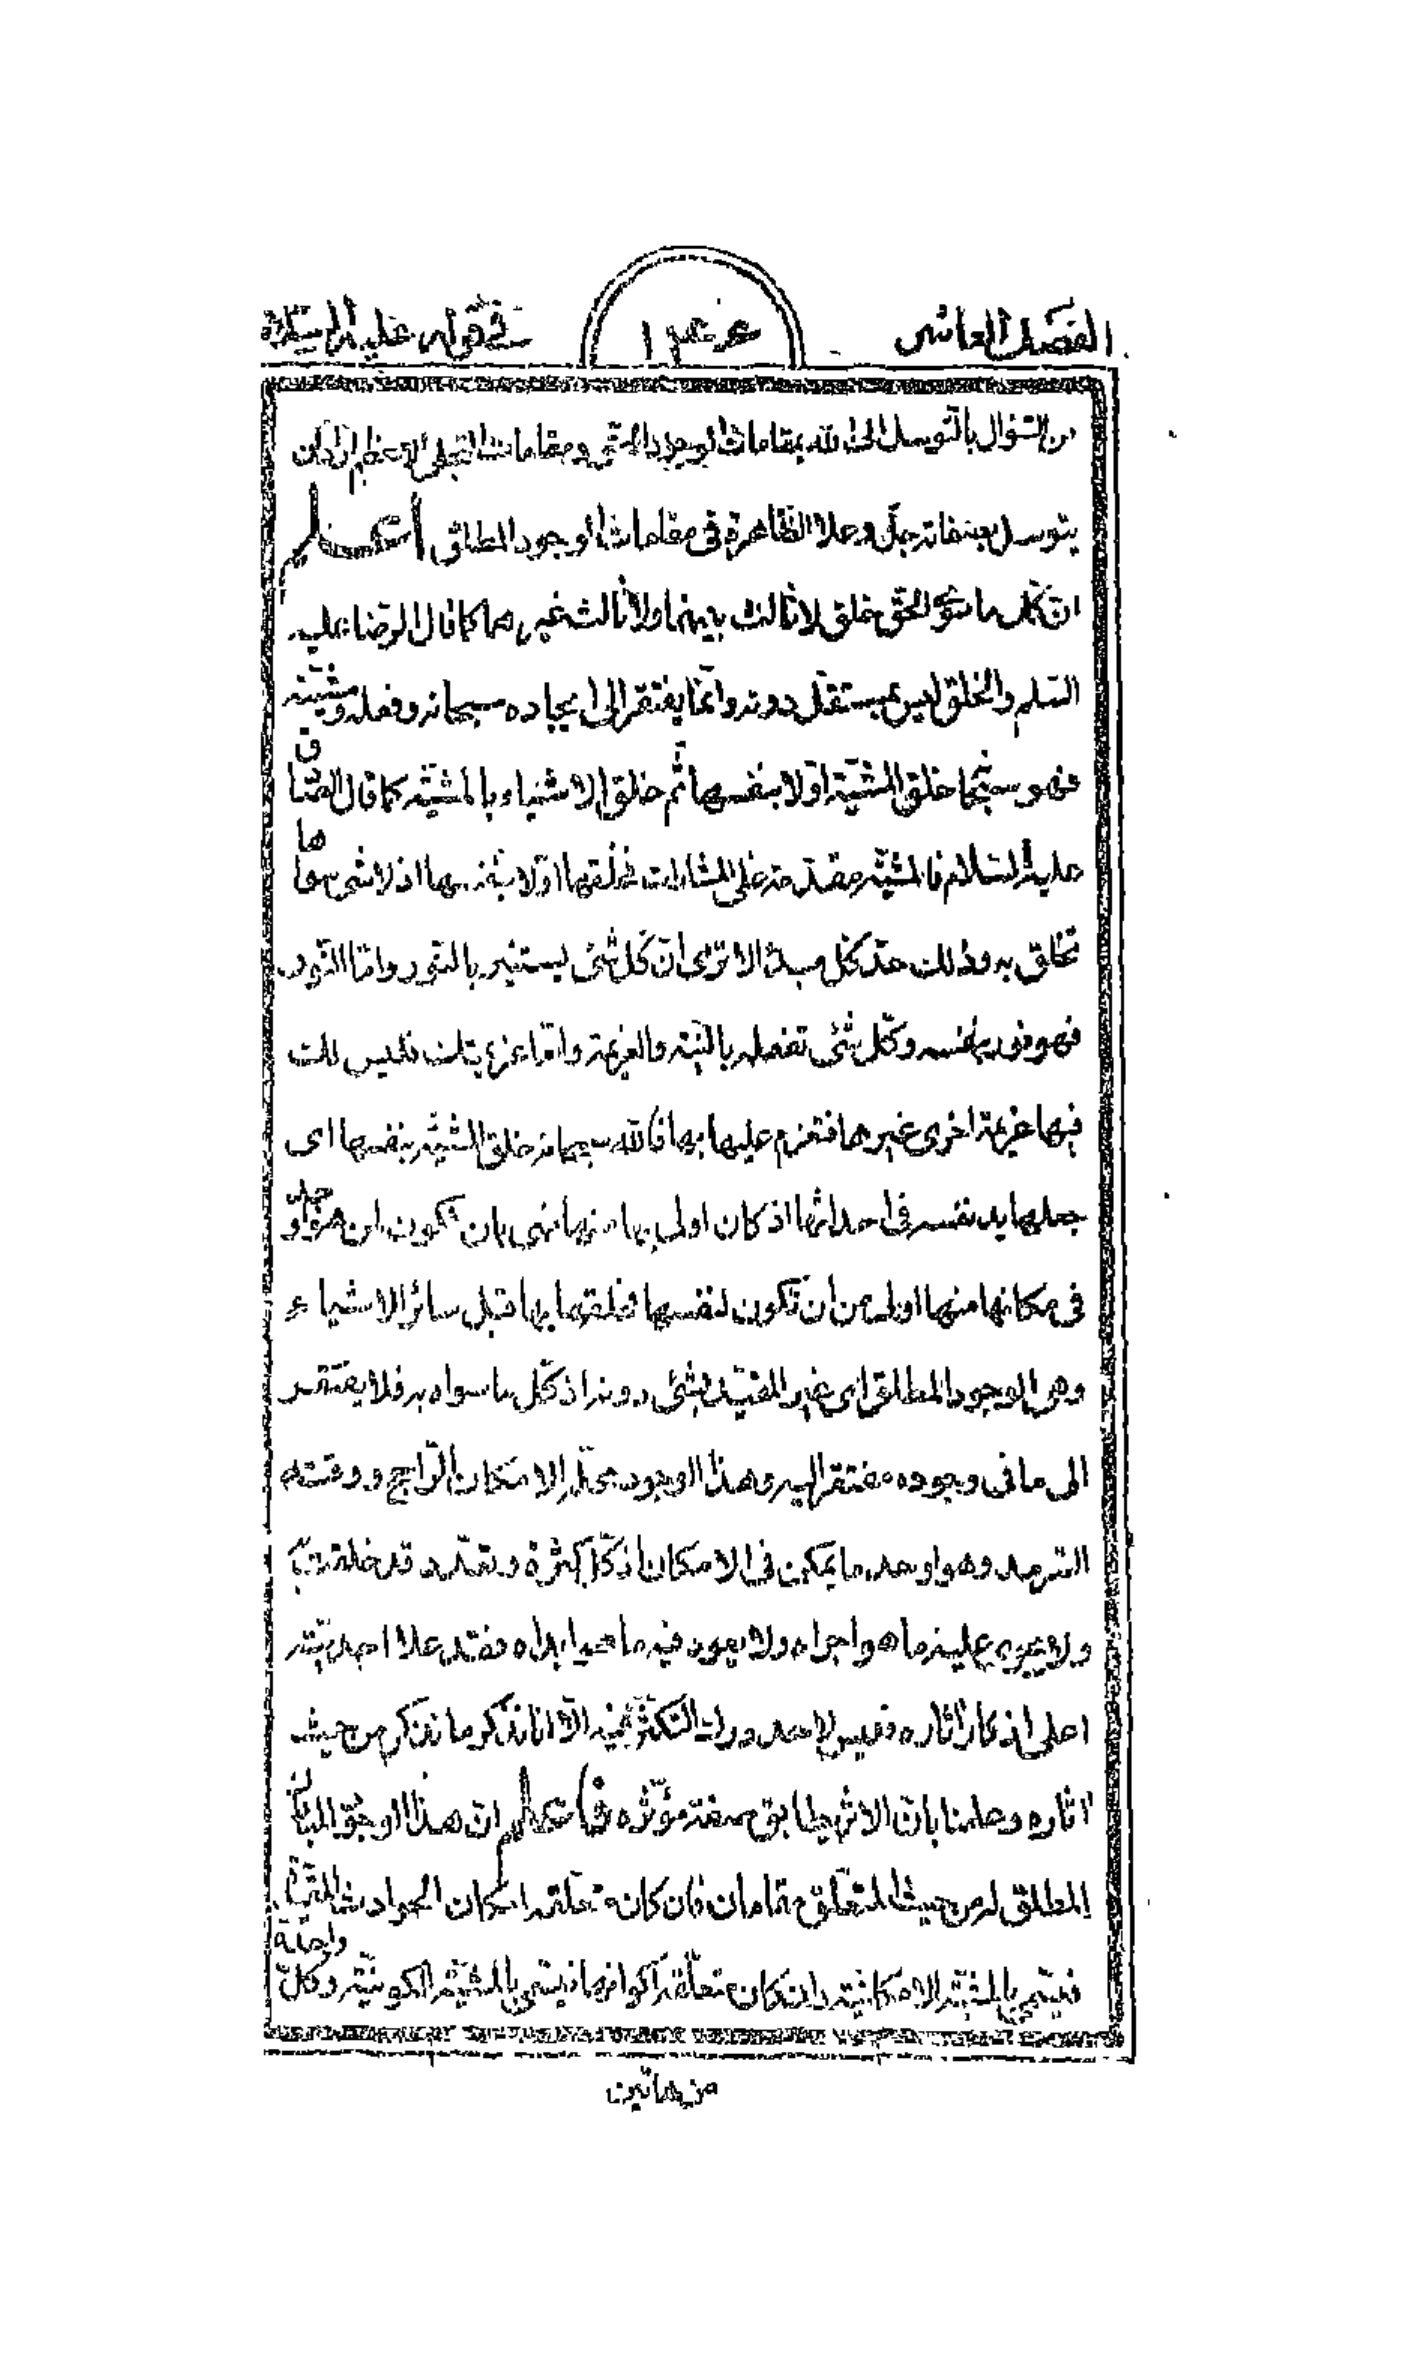 الفصل العاشر
في قوله عليه السلام
من السؤال بالتوسل الى الله بمقامات الوجود الحق ومقامات التجلى الاعظم اراد ان
يتوسل بصفاته جل وعلا الظاهرة في مقامات الوجود المطلق اعلم
ان كل ما سوى الحق خلق لا ثالث بينهما ولا ثالث غيرهما كما قال الرضا عليه
السلم والخلق ليس بمستقل دونه وانما يفتقر الى ايجاده سبحانه وفعله ومشيته
فهو سبحانه خلق المشية اولا بنفسها ثم خلق الاشياء بالمشية كما قال الصادق
عليه السلام فالمشية مقدمة على المشاءات فخلقها اولا بنفسها اذ لا شئ سواها
تخلق به وذلك حد كل مبدء الا ترى ان كل شئ يستنير بالنور واما النور
فهو نور بنفسه وكل شئ تفعله بالنية والعزيمة واما عزيمتك فليس لك
فيها عزيمة اخرى غيرها فتعزم عليها بها فالله سبحانه خلق المشية بنفسها اى
جعلها يد نفسه في احداثها اذ كان اولى بها منها فهى بان تكون له جل وعلا
في مكانها منها اولى من ان تكون لنفسها فخلقها بها قبل سائر الاشياء
وهى الوجود المطلق اى غير المقيد بشئ دونه اذ كل ما سواه به فلا يفتقر
الى ما في وجوده مفتقر اليه وهذا الوجود محله الامكان الراجح ووقته
السرمد وهو اوحد ما يمكن في الامكان اذ كل كثرة وتعدد قد خلقت به
ولا يجرى عليه ما هو اجراه ولا يعود فيه ما هو ابداه فقد علا احديته
اعلى اذكار اثاره فليس لاحد درك التكثر فيه الا انا نذكر ما نذكر من حيث
اثاره وعلمنا بان الاثر يطابق صفة مؤثره فاعلم ان هذا الوجود المبارك
المطلق له من حيث المتعلق مقامان فان كان متعلقه امكان الحوادث
فيسمى بالمشية الامكانية وان كان متعلقه اكوانها فيسمى بالمشية الكونية وكل واحدة
من هاتين